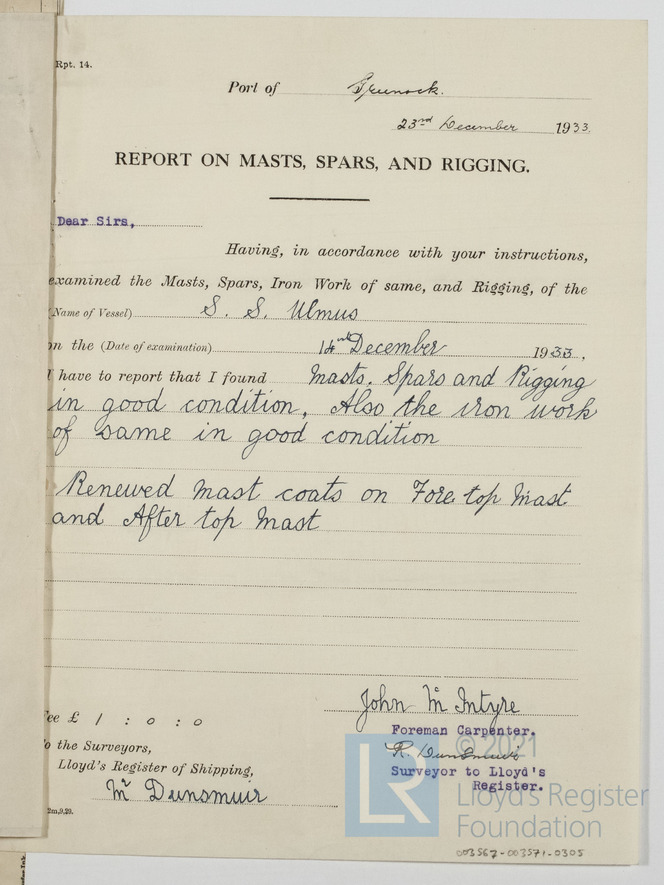 Rpt. 14.
Port of Greenock.
23rd December 1933.
REPORT ON MASTS, SPARS, AND RIGGING.
Dear Sirs,
Having, in accordance with your instructions,
examined the Masts, Spars, Iron Work of same, and Rigging, of the
(Name of Vessel) S. S. Ulmus
on the (Date of examination) 14th December 1933.
I have to report that I found Masts. Spars and Rigging
in good condition, Also the iron work
of same in good condition
Renewed Mast coats on Fore top Mast
and After top Mast
John McIntyre
Fee £ 1 : 0 : 0
Foreman Carpenter.
To the Surveyors,
R. Dunsmuir
© 2021
Lloyd's Register of Shipping,
Surveyor to Lloyd's
Register.
Mr Dunsmuir
LR
Lloyd's Register
Foundation
2m,9,29.
003567-003571-0305